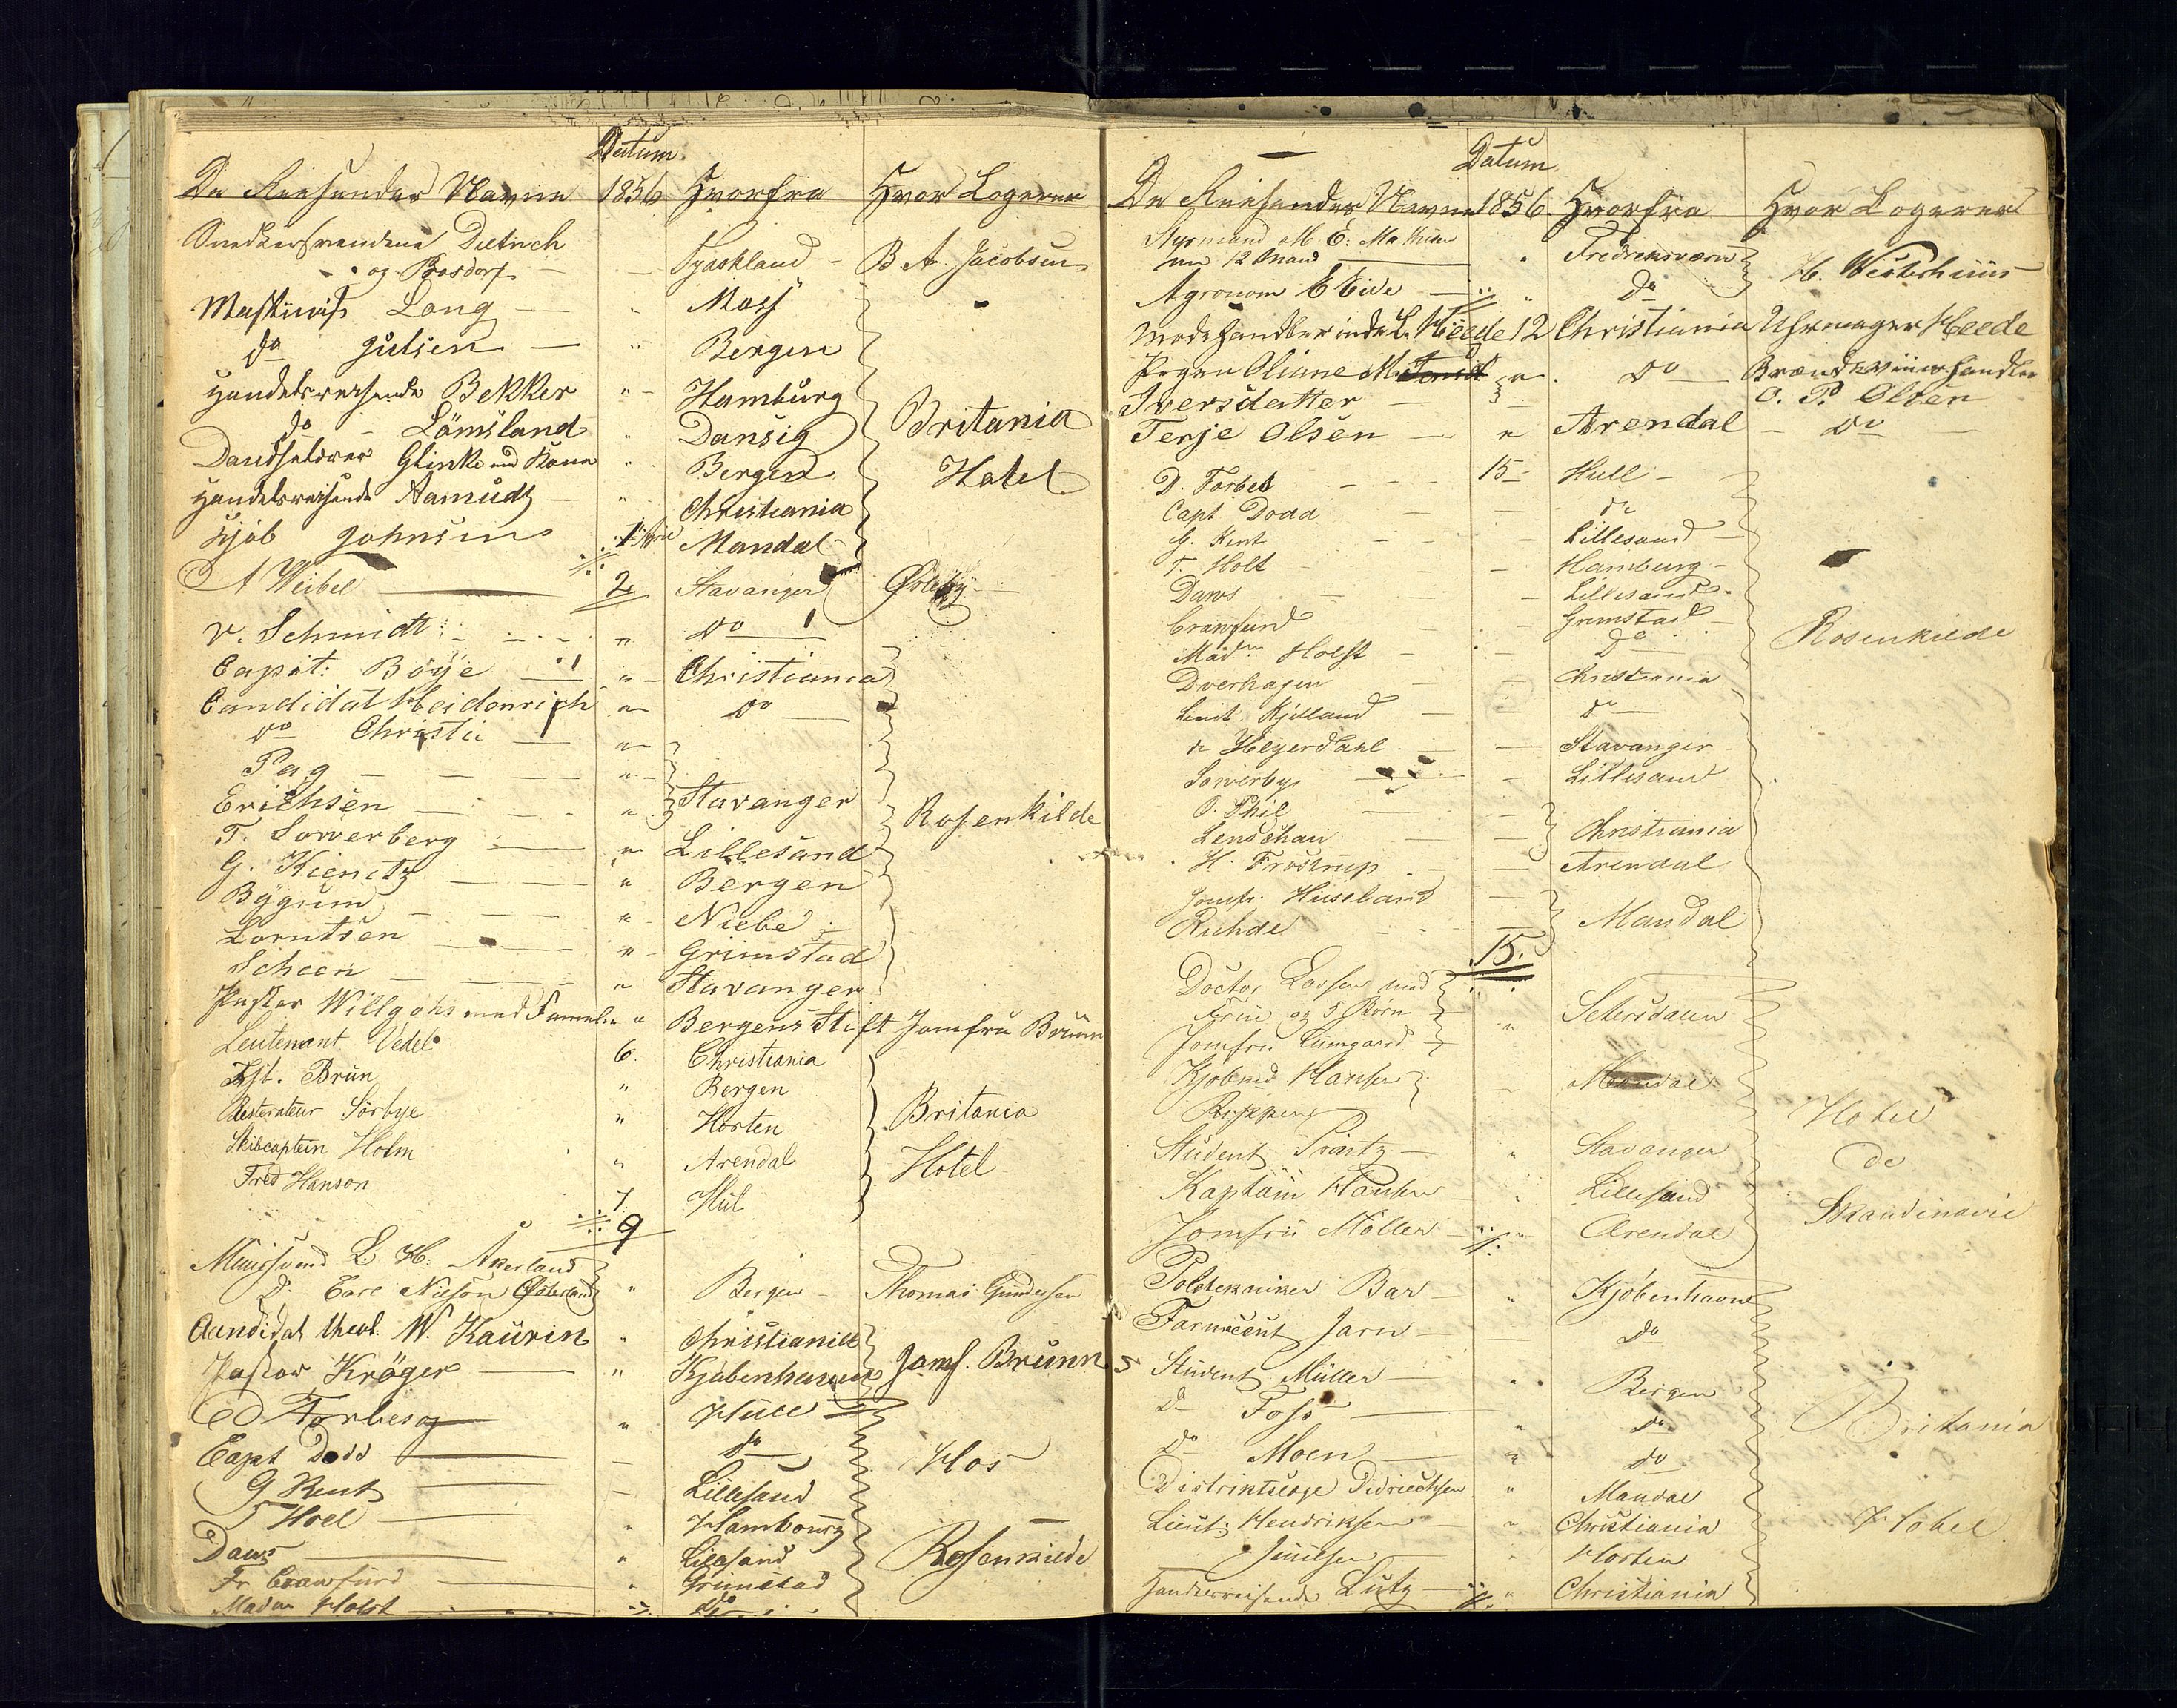 Datum
De Reisendes Navne 1856 Hvorfra Hvor Logerer
Snedkersvendene Dietrich
og Bosdorf — Tyaskland - B. A. Jacobsen
Maskinist Lang — " Moss
do Julsen — " Bergen
Handelsreisende Bekker " Hamburg
do - Lömsland " Dansig Britania
Glinke und Kone " Bergen Hotel
Handelsreisende Aamudt " Christiania
Kjøb Johnsen Mandal
A Weibel 2 Stavanger
v. Schmidt " do
Capit: Böÿe " Christiania
Candidat Heidenrich " do
do Christie "
Pag "
Erichsen " Stavanger Rosenkilde
T. Sowerberg " Lillesand
G. Kienitz " Bergen
Bÿgum " Niebe
Lorntsen " Grimstad
Scheen " Stavanger
Pastor Willgohs med Famelie " Bergens Stift Jomfru Brünn
Leutenant Vedel 6. Christiania
Brun " Bergen
Resterateur Sörbye " Horten Britania
Skibcaptein Holm " Arendal Hotel
Fred Hanson 7. Hul
9
L. H. Akerland
Do Nielson Østerland " Bergen - Thomas Gundersen
Candidat theol. W. Kaurin " Christiania
Pastor Kröger " Kjøbenhavn Jomf. Brünn
Ed Forbes " Hull
Capt Dodd — do Hos
G Kent — Lillesand
T Hoel " Hambourg
Daws " Lillesand Rosenkilde
Fr. Crawfurd " Grimstad
Madam Holst do
Datum
De Reisendes Navne 1856 Hvorfra Hvor Logerer
Styrmand M. E. Mathisen
12 Mand " Fredriksværn H. Westerhuus
Agronom E Eide " Do
Modehandlerinde L. Heede 12 Christiania Uhrmager Heede
Pigen Oliane " do Brændeviinshandler
Iversdatter O. P. Olsen
Terje Olsen " Arendal - do
D. Forbes 15 Hull
Capt Dodd do
G. Kent Lillesand
T. Holt Hamburg
Daws Lillesand
Crawfurd Grimstad
Madm Holst Do Rosenkilde
Dverhagen Christiania
Lieut. Kjelland do
do Heyerdahl Stavanger
Sowerby Lillesand
O. Phil
Lenschau Christiania
H. Frostrup Arendal
Jomfr. Huseland
Ruhde Mandal
15.
Doctor Larsen med
Frue og 5 Børn " Setersdalen
Jomfru
Kjøbmd Hansen Mandal
Hotel
Student Printz " Stavanger de
Kaptain Hansen " Lillesand Skandinavie
Jomfru Möller " Arendal
Poletekniker Bar " Kjøbenhavn
Farmaceut Jarn Do
Student Müller " Bergen
Do Foss " do Britania
Do Moen " do
Didriechsen " Mandal
Lieut: Hendriksen " Christiania Hotel
Juulsen " Horten
Handelsreisende Lutz " Christiania